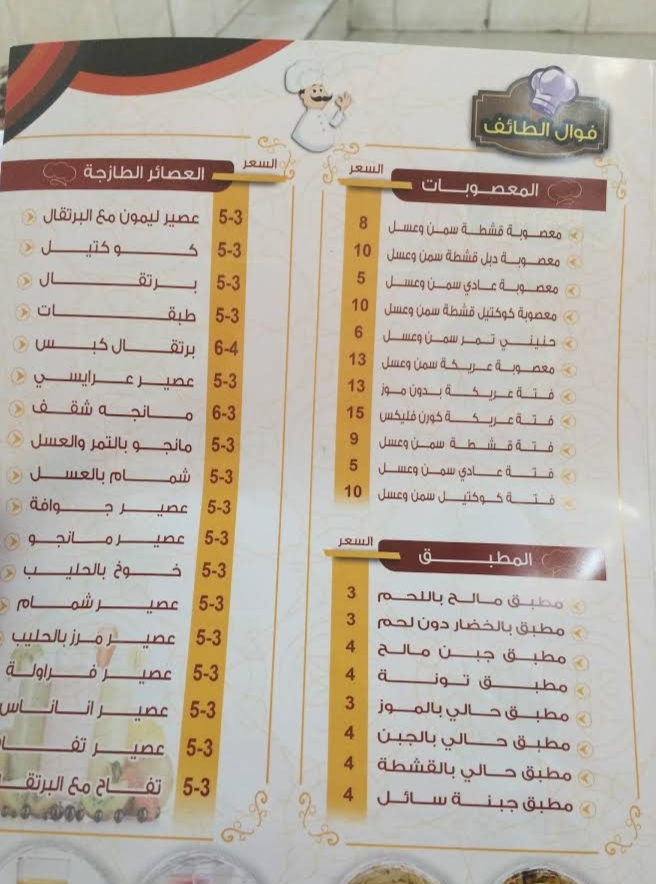 فوال الطائف
المعصوبات
السعر
معصوبة قشطة سمن وعسل 8
معصوبة دبل قشطة سمن وعسل 10
معصوبة عادي سمن وعسل 5
معصوبة كوكتيل قشطة سمن وعسل 10
حنيني تمر سمن وعسل 6
معصوبة عريكة سمن وعسل 13
فتة عريكة بدون موز 13
فتة عريكة كورن فليكس 15
فتة قشطة سمن وعسل 9
فتة عادي سمن وعسل 5
فتة كوكتيل سمن وعسل 10
المطبق
السعر
مطبق مالح باللحم 3
مطبق بالخضار دون لحم 3
مطبق جبن مالح 4
مطبق تونة 4
مطبق حالي بالموز 3
مطبق حالي بالجبن 4
مطبق حالي بالقشطة 4
مطبق جبنة سائل 4
السعر
العصائر الطازجة
5-3 عصير ليمون مع البرتقال
5-3 كوكتيل
5-3 برتقال
5-3 طبقات
6-4 برتقال كبس
5-3 عصير عرايسي
6-3 مانجه شقف
5-3 مانجو بالتمر والعسل
5-3 شمام بالعسل
5-3 عصير جوافة
5-3 عصير مانجو
5-3 خوخ بالحليب
5-3 عصير شمام
5-3 عصير مرز بالحليب
5-3 عصير فراولة
5-3 عصير اناناس
5-3 عصير
5-3 تفاح مع